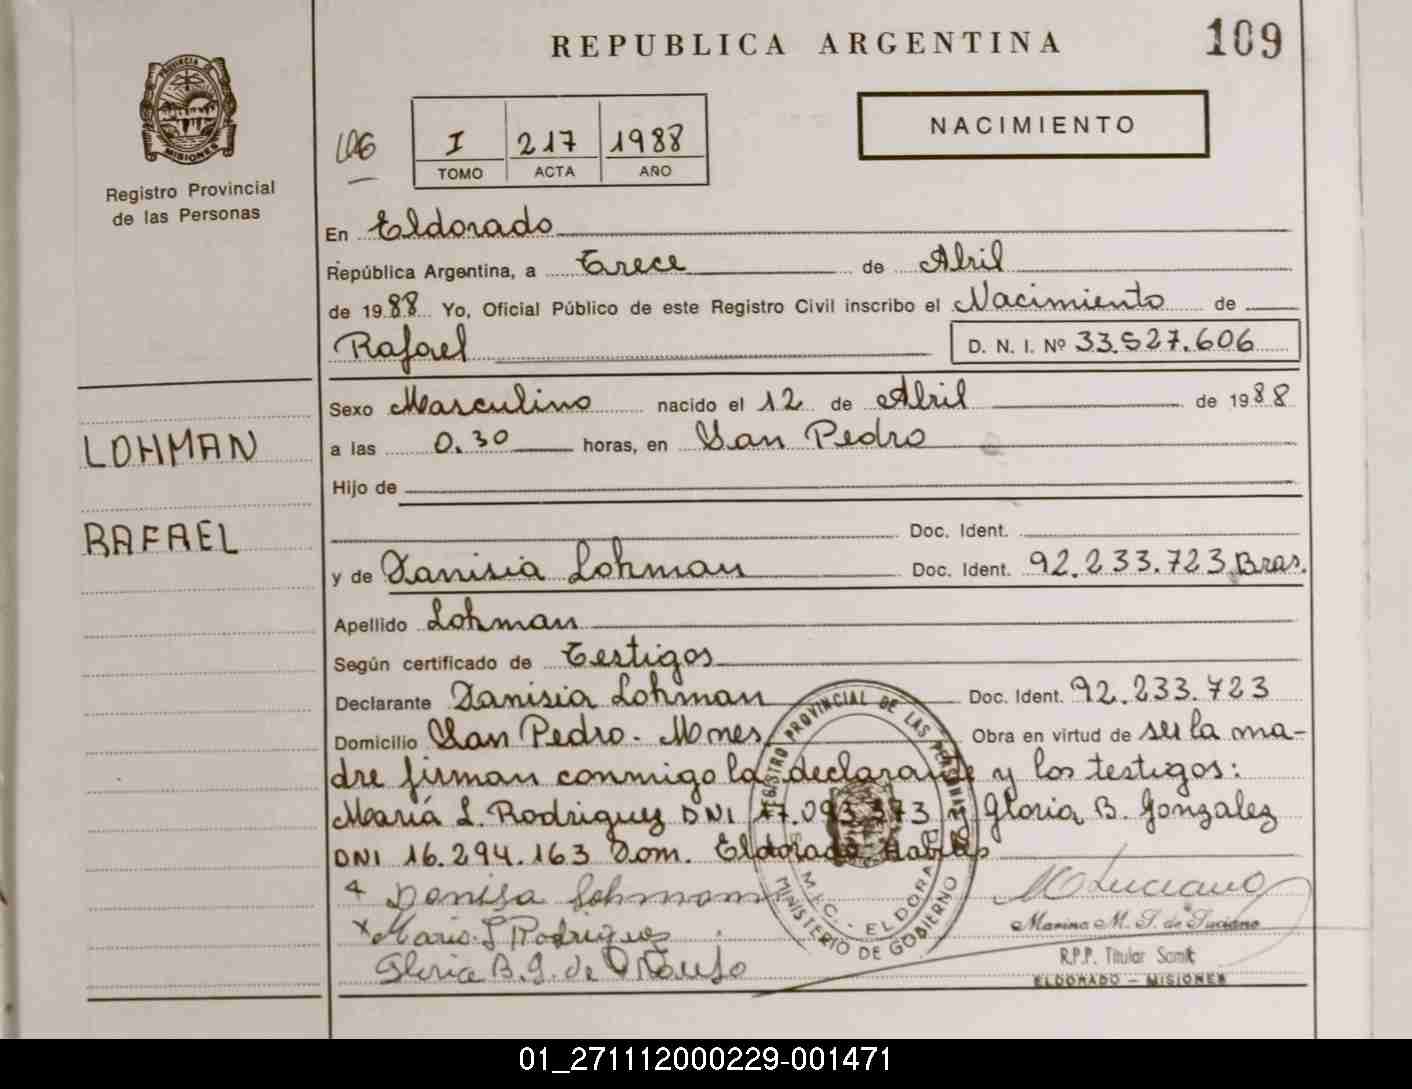 REPUBLICA ARGENTINA
109
PROVINCIA DE MISIONES
Registro Provincial
de las Personas
I 217 1988
TOMO ACTA AÑO
NACIMIENTO
En Eldorado
República Argentina, a Trece de Abril
de 1988 Yo, Oficial Público de este Registro Civil inscribo el Nacimiento de
Rafael D. N. I. Nº 33.527.606
Sexo Masculino nacido el 12 de Abril de 1988
a las 0.30 horas, en San Pedro
Hijo de
Doc. Ident.
y de Danisia Lohman Doc. Ident. 92.233.723 Bras.
Apellido Lohman
Según certificado de Testigos
Declarante Danisia Lohman Doc. Ident. 92.233.723
Domicilio San Pedro - Mnes Obra en virtud de ser la ma-
dre firman conmigo la declarante y los testigos:
María L. Rodriguez DNI 17.093.373 y Gloria B. Gonzalez
DNI 16.294.163 Dom. Eldorado Habiles
LOHMAN
RAFAEL
Denisa Lohmann
Maria L Rodriguez
Gloria B. G. de
M Luciano
Marina M. S. de Luciano
R.P.P. Titular Samic
ELDORADO - MISIONES
REGISTRO PROVINCIAL DE LAS PERSONAS
S.A.M.I.C. - ELDORADO
MINISTERIO DE GOBIERNO
01_271112000229-001471